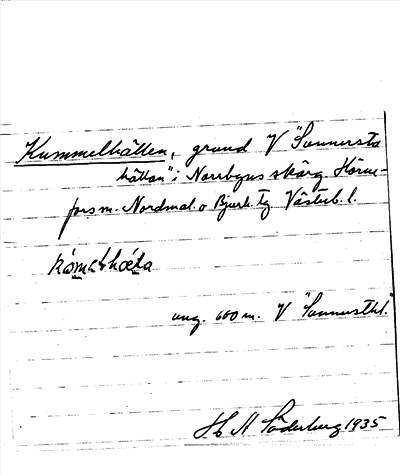 Kummelhällen, grund V "Sonnersta
hällan" i Norrbyns skärg. Hörne-
fors m. Nordmal. o Bjurh. tg Västerb. l.
ung. 600 m. V "Sonnersthl."
H A Söderberg 1935